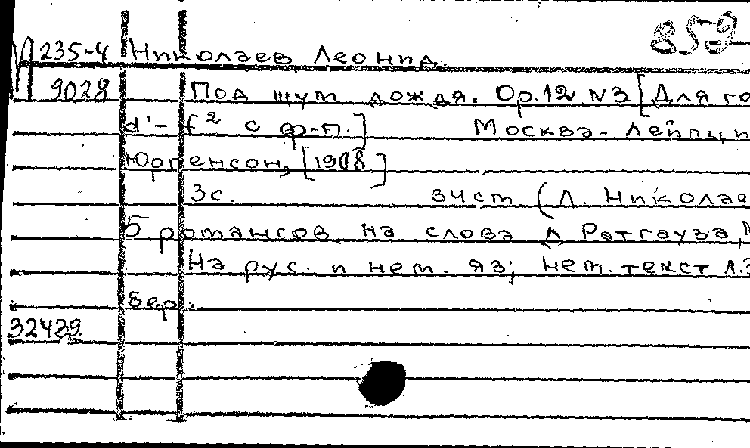 859
П 235-4 Николаев Леонид.
9028 Под шум дождя. Op.12 N3 [Для го
d'- f² с ф-п.] Москва - Лейпци
Юргенсон, [1908]
3с. 34cm (Л. Николае
5 романсов на слова Д. Ратгауза,
На рус. и нем. яз; нем. текст Л.
32429.